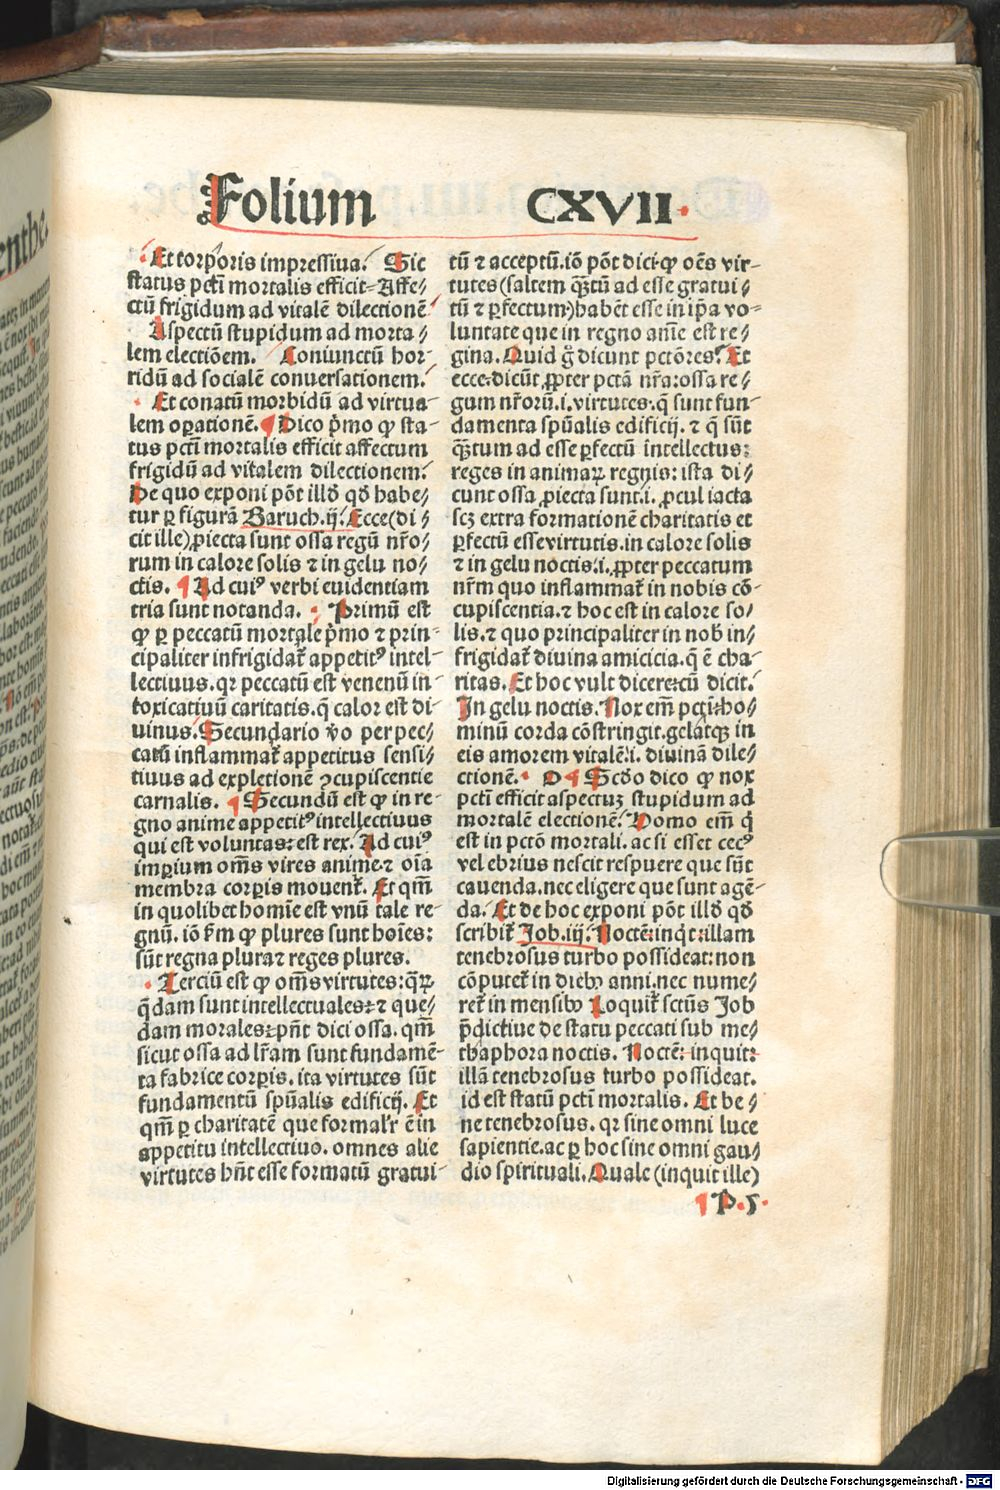 Folium CXVII
Et corporis impressiua. Sic
status pcti mortalis efficit Affe⸗
ctū frigidum ad vitalē dilectionē
Aspectū stupidum ad morta⸗
lem electiōem. Coniunctū hor⸗
ridū ad socialē conuersationem.
Et conatū morbidū ad virtua⸗
lem oꝑationē. ¶ Dico p̄mo ꝙ sta⸗
tus pcti mortalis efficit affectum
frigidū ad vitalem dilectionem.
De quo exponi pōt illđ qđ habe⸗
tur ꝑ figurā Baruch.ij. Ecce(di⸗
cit ille)ꝓiecta sunt ossa regū nr̄o⸗
rum in calore solis ⁊ in gelu no⸗
ctis. ¶ Ad cuiꝰ verbi euidentiam
tria sunt notanda. Primū est
ꝙ ꝑ peccatū mortale p̄mo ⁊ prin⸗
cipaliter infrigidat᷑ appetitꝰ intel⸗
lectiuus. qꝛ peccatū est venenū in⸗
toxicatiuū caritatis. q̄ calor est di⸗
uinus. Secundario v̄o per pec⸗
catū inflammat᷑ appetitus sensi⸗
tiuus ad expletionē ꝯcupiscentie
carnalis. ¶ Secundū est ꝙ in re⸗
gno anime appetitꝰ intellectiuus
qui est voluntas: est rex. Ad cuiꝰ
imꝑium om̄s vires anime ⁊ oīa
membra corꝑis mouent᷑. Et qm̄
in quolibet homīe est vnū tale re⸗
gnū. iō f̄m ꝙ plures sunt hoīes:
sūt regna plura ⁊ reges plures.
Terciū est ꝙ om̄s virtutes: q̄ꝝ
q̄dam sunt intellectuales: ⁊ que⸗
dam morales: pn̄t dici ossa. qm̄
sicut ossa ad lr̄am sunt fundamē⸗
ta fabrice corꝑis. ita virtutes sūt
fundamentū spūalis edificij. Et
qm̄ ꝑ charitatē que formal'r ē in
appetitu intellectiuo. omnes alie
virtutes hn̄t esse formatū gratui⸗
tū ⁊ acceptū. iō pōt dici ꝙ oēs vir⸗
tutes (saltem q̄ꝫtū ad esse gratui⸗
tū ⁊ ꝑfectum) habēt esse in ip̄a vo⸗
luntate que in regno anīe est re⸗
gina. Quid ḡ dicunt pctōres? Et
ecce. dicūt ꝓpter pctā nr̄a: ossa re⸗
gum nr̄orū. i. virtutes. q̄ sunt fun⸗
damenta spūalis edificij. ⁊ q̄ sūt
q̄ꝫtum ad esse ꝑfectū intellectus:
reges in animaꝝ regnis: ista di⸗
cunt ossa ꝓiecta sunt. i. ꝓcul iacta
scꝫ extra formationē charitatis et
ꝑfectū esse virtutis. in calore solis
⁊ in gelu noctis. i. ꝓpter peccatum
nr̄m quo inflammat᷑ in nobis cō⸗
cupiscentia. ⁊ hoc est in calore so⸗
lis. ⁊ quo principaliter in nob̄ in⸗
frigidat᷑ diuina amicicia. q̄ ē cha⸗
ritas. Et hoc vult dicere: cū dicit.
In gelu noctis. Nox em̄ pcti: ho⸗
minū corda cōstringit. gelatꝗꝫ in
eis amorem vitalē. i. diuinā dile⸗
ctionē. O ¶ Scđo dico ꝙ nox
pcti efficit aspectuꝫ stupidum ad
mortalē electionē. Homo em̄ q̄
est in pctō mortali. ac si esset cecꝰ
vel ebrius nescit respuere que sūt
cauenda. nec eligere que sunt agē⸗
da. Et de hoc exponi pōt illđ qđ
scribit᷑ Job.iij. Noctē: inq̄t: illam
tenebrosus turbo possideat: non
cōputet᷑ in diebꝰ anni. nec nume⸗
ret᷑ in mensibꝰ Loquit᷑ sctūs Job
p̄dictiue de statu peccati sub me⸗
thaphora noctis. Noctē: inquit:
illā tenebrosus turbo possideat.
id est statū pcti mortalis. Et be⸗
ne tenebrosus. qꝛ sine omni luce
sapientie. ac ꝑ hoc sine omni gau⸗
dio spirituali. Quale (inquit ille)
¶ P.5
Digitalisierung gefördert durch die Deutsche Forschungsgemeinschaft - DFG